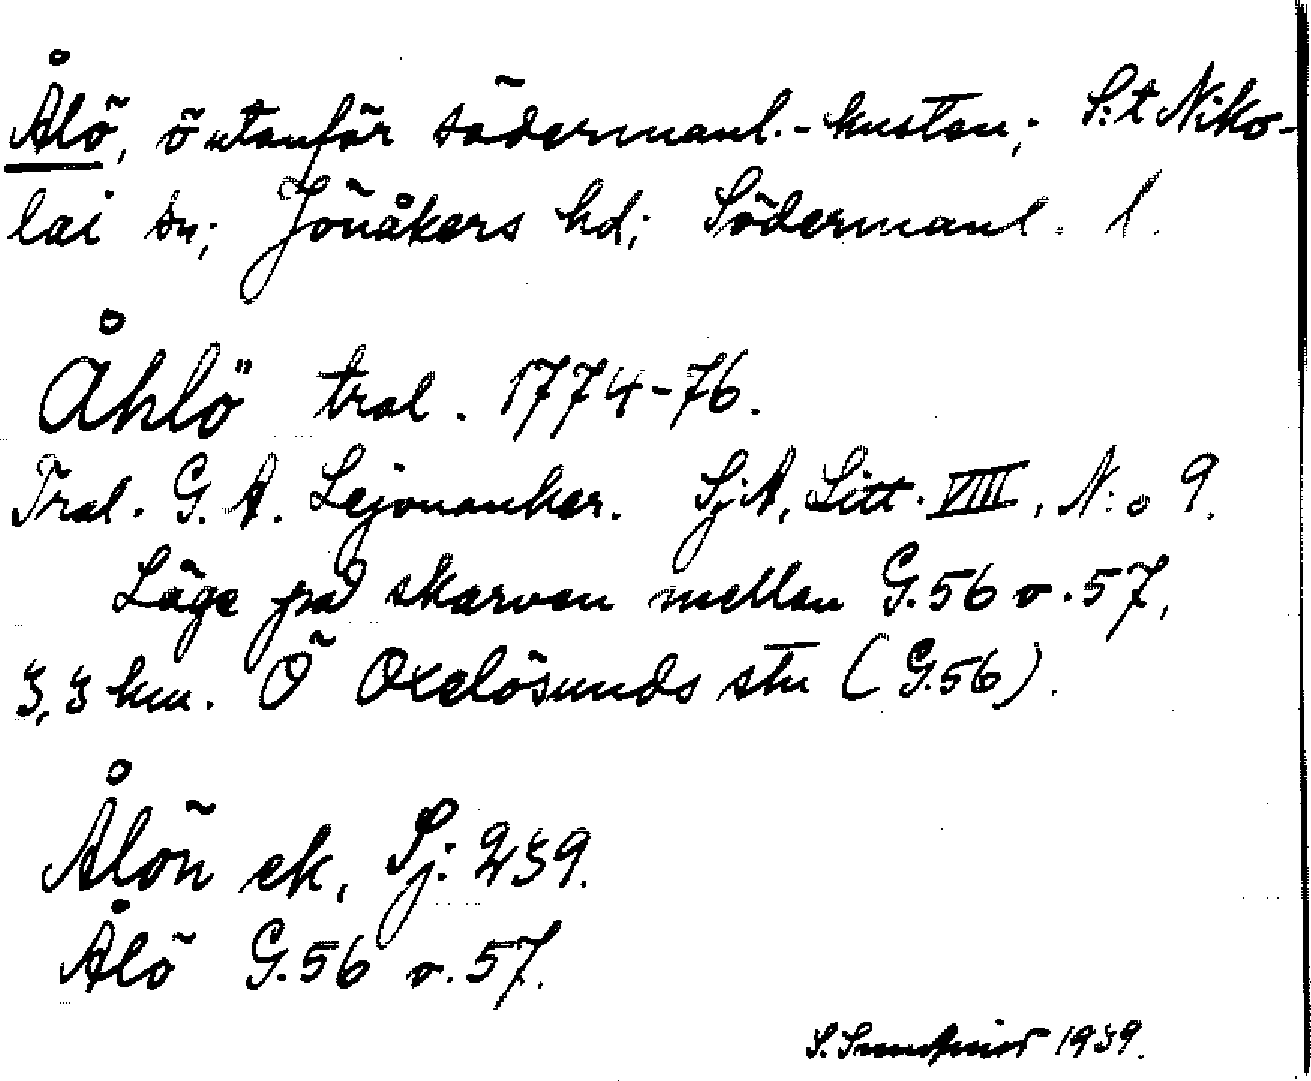 Ålö, ö utanför södermanl.-kusten; S:t Niko-
lai sn; Jönåkers hd; Södermanl. l.
Åhlö tral. 1774-76.
Tral. G. A. Lejonanker. SjA, Litt. VIII, N:o 9.
Läge på skarven mellan G.56 o. 57,
3,3 km. Ö Oxelösunds stn (G.56).
Ålön ek, Sj: 239.
Ålö G.56 o. 57.
S. 1939.